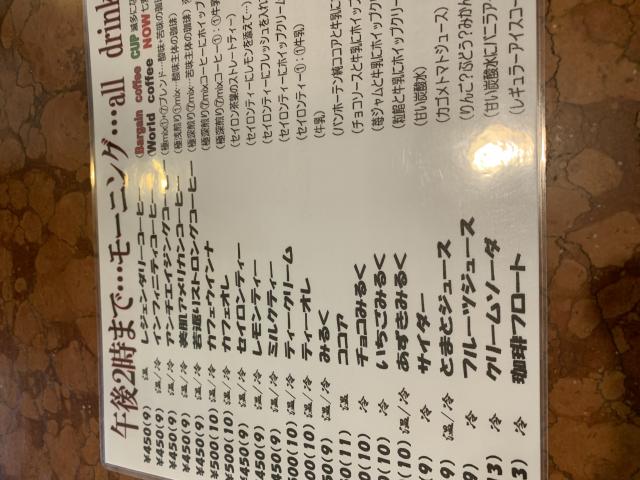 午後2時まで…モーニング…all drink
¥450(9) 温 レジェンダリーコーヒー (Bargain coffee CUP
¥450(9) 温/冷 インフィニティコーヒー (World coffee NOW
¥450(9) 温/冷 アンチエイジングコーヒー
¥450(9) 温/冷 美肌アメリカンコーヒー (極浅煎り①mix…酸味主体の珈琲)
¥450(9) 温/冷 若返りストロングコーヒー (極深煎り⑦mix…苦味主体の珈琲)
¥500(10) 温/冷 カフェウインナ (極深煎り⑦mixコーヒーにホイップ
¥500(10) 温/冷 カフェオレ (極深煎り⑦mixコーヒー①:①牛乳)
450(9) 温/冷 セイロンティー (セイロン茶葉のストレートティー)
450(9) 温/冷 レモンティー (セイロンティーにレモンを添えて…)
450(9) 温/冷 ミルクティー (セイロンティーにフレッシュを入れ
00(10) 温/冷 ティークリーム (セイロンティーにホイップクリーム
00(10) 温/冷 ティーオレ (セイロンティー①:①牛乳)
(9) 温/冷 みるく (牛乳)
0(11) 温 ココア (バンホーテン純ココアと牛乳に
(10) 冷 チョコみるく (チョコソースと牛乳にホイップク
(10) 冷 いちごみるく (苺ジャムと牛乳にホイップクリー
(10) 温/冷 あずきみるく (粒餡と牛乳にホイップクリー
(9) 冷 サイダー (甘い炭酸水)
9) 温/冷 とまとジュース (カゴメトマトジュース)
9) 冷 フルーツジュース (りんご?ぶどう?みかん
3) 冷 クリームソーダ (甘い炭酸水にバニラア
3) 冷 珈琲フロート (レギュラーアイスコー